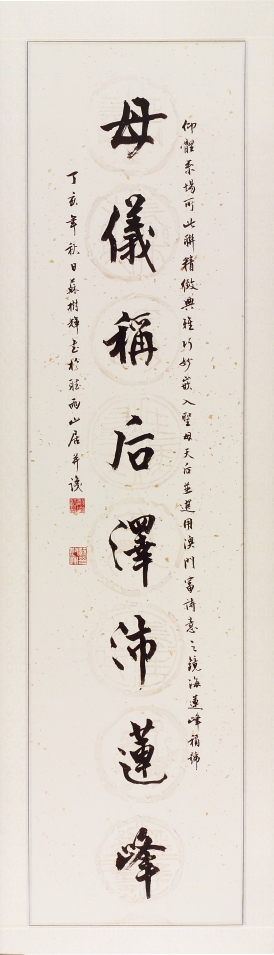 仰體意場所此聯精微典雅巧妙嵌入聖母天后並選用澳門富詩意之鏡海蓮峰稱號
母儀稱后澤沛蓮峰
丁亥年秋日蘇樹輝書於聽雨山居并識